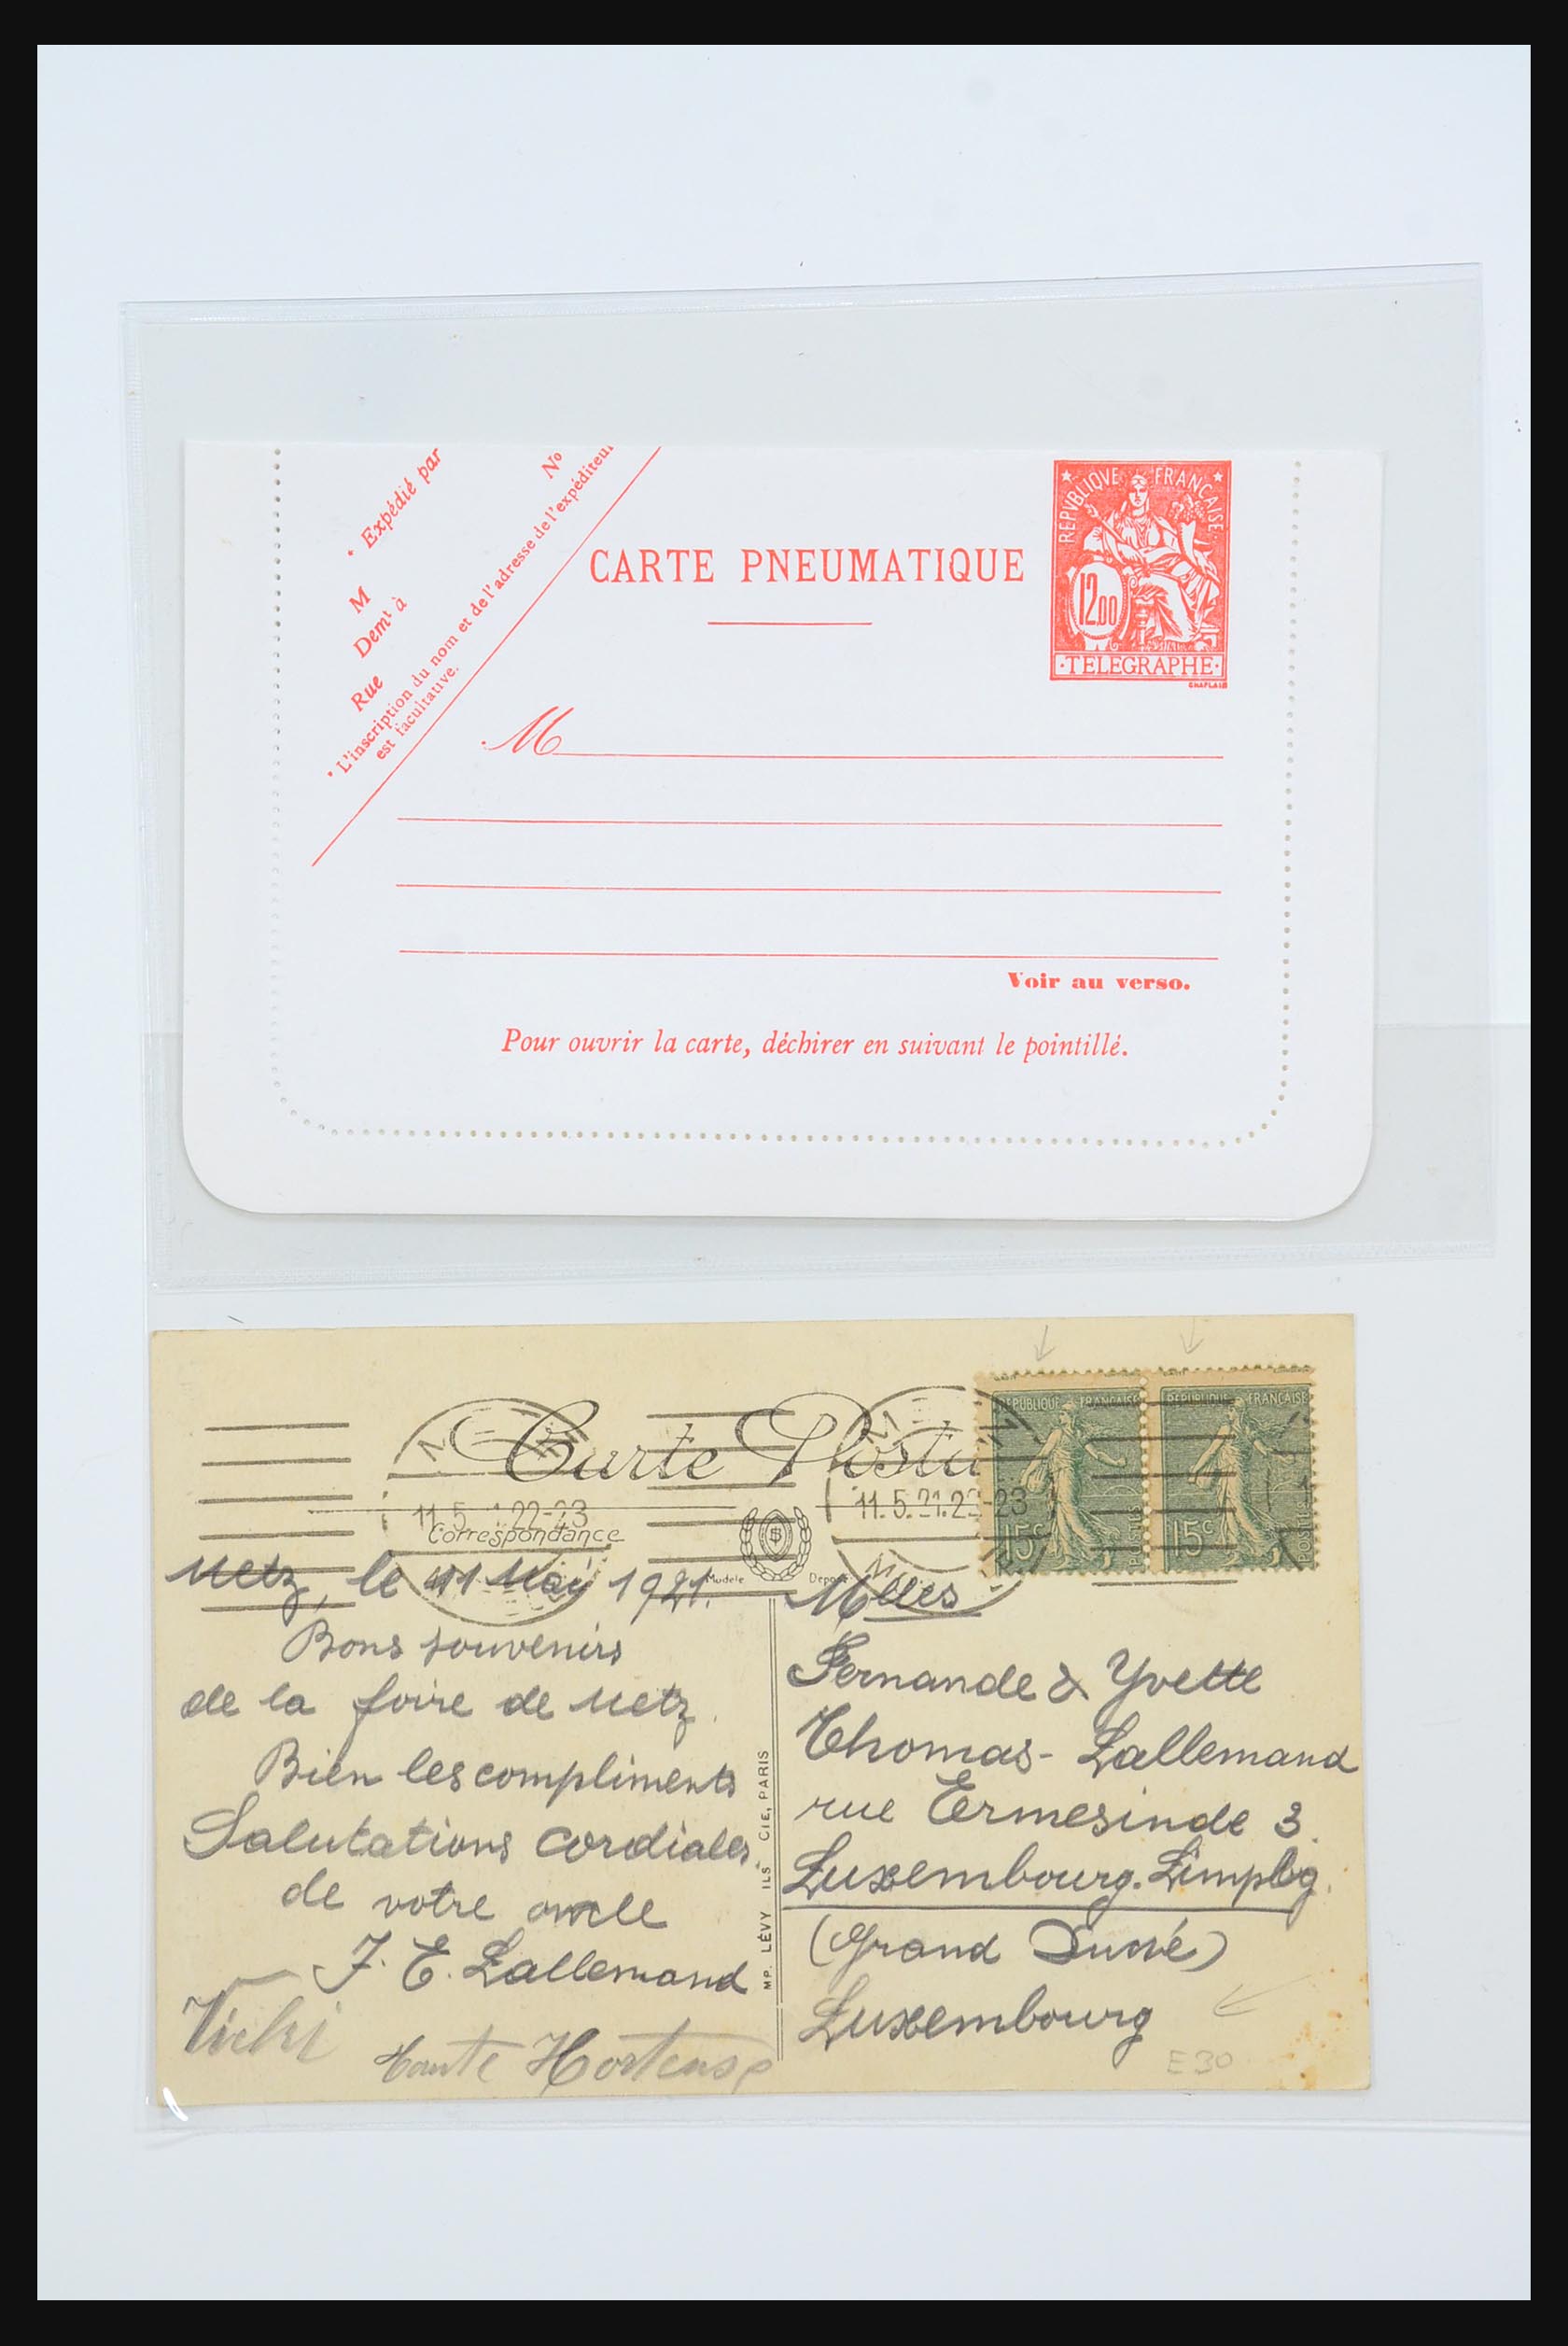 Expédié par
No
M
Demt à
Rue
* L'inscription du nom et de l'adresse de l'expéditeur
est facultative.
CARTE PNEUMATIQUE
REPVBLIQVE FRANCAISE
12.00
TELEGRAPHE
CHAPLAIN
M
Voir au verso.
Pour ouvrir la carte, déchirer en suivant le pointillé.
Carte Posta
REPUBLIQUE FRANÇAISE
REPUBLIQUE FRANÇAISE
15c
POSTES
15c
POSTES
11.5 22-23
11.5.21.22-23
Correspondance
Modèle
Déposé
Metz, le 11 Mai 1921.
Bons souvenirs
de la foire de Metz.
Bien les compliments
Salutations cordiales
de votre oncle
J. E. Lallemand
Tante Hortense
MP. LÉVY ILS & CIE, PARIS
Melles
Fernande & Yvette
Thomas-Lallemand
rue Ermesinde 3.
Luxembourg. Limpbg.
(Grand Duché)
Luxembourg
E30